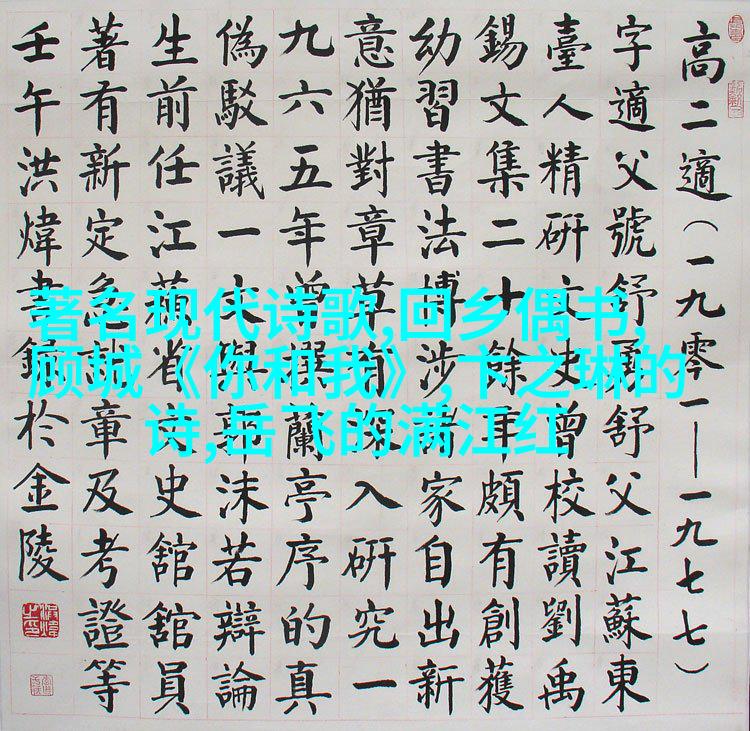 高二適（一九零一——一九七七）
字適父號舒舒父江蘇東
臺人精研文史曾校讀劉禹
錫文集二十餘年頗有創獲
幼習書法博涉諸家自出新
意猶對章草有深入研究一
九六五年曾撰蘭亭序的真
偽駁議一文與郭沫若辯論
生前任江蘇省文史舘舘員
著有新定急就章及考證等
壬午洪煒書錄於金陵
著名现代诗歌,回乡偶书,
顾城《你和我》,卞之琳的
诗,岳飞的满江红